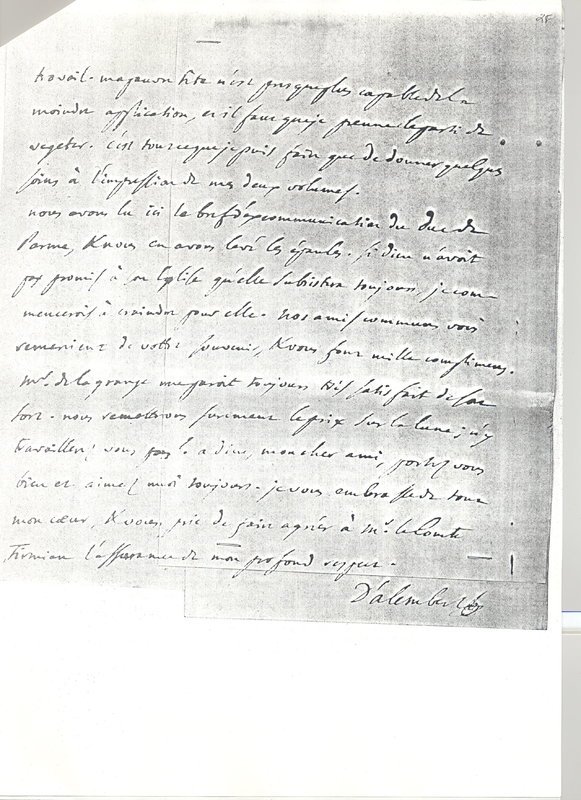 25
travail. ma pauvre tête n'est presque plus capable de la
moindre application, et il faut que je prenne le parti de
vegeter. c'est tout ce que je puis faire que de donner quelques
soins à l'impression de mes deux volumes.
nous avons lu ici le bref d'excommunication du Duc de
Parme, & nous en avons levé les épaules. si dieu n'avoit
pas promis à son Eglise qu'elle subsistera toujours, je com
mencerois à craindre pour elle. nos amis communs vous
remercient de votre souvenir, & vous font mille complimens.
mr. de la grange me paroit toujours très satisfait de son
sort. nous remettrons surement le prix sur la lune; y
travaillerez vous? adieu, mon cher ami, portez vous
bien et aimez moi toujours. je vous embrasse de tout
mon cœur, & vous prie de faire agréer à mr. le Comte
Firmian l'assurance de mon profond respect.
D'alembert